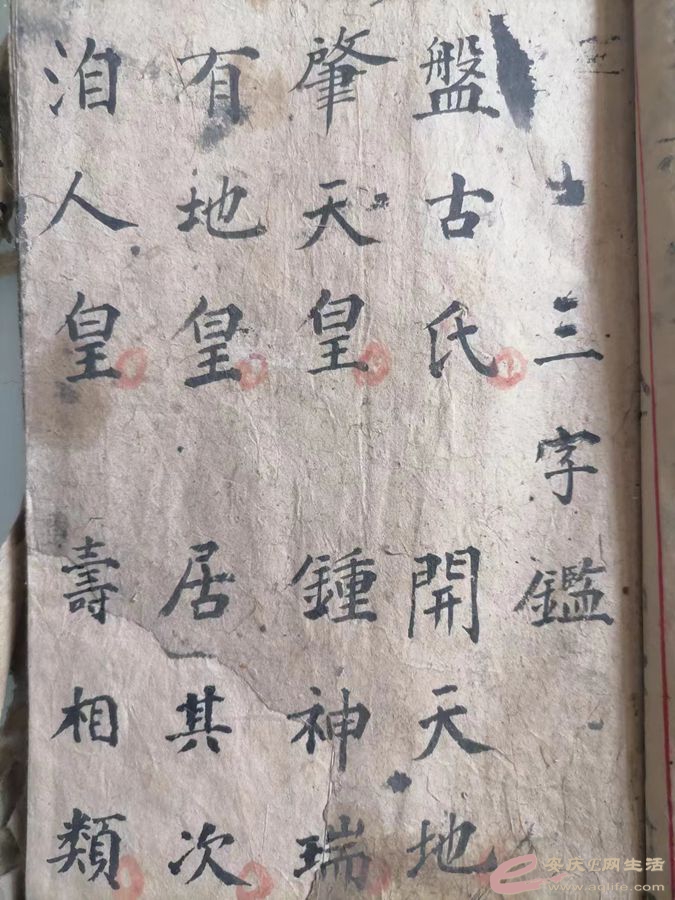 三字鑑
盤古氏 開天地
肇天皇 鍾神瑞
有地皇 居其次
洎人皇 壽相類
安庆E网生活
www.aqlife.com